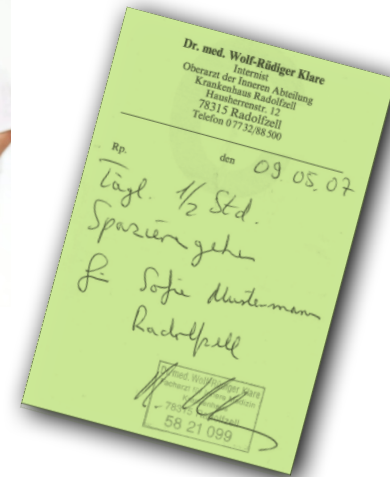 Dr. med. Wolf-Rüdiger Klare
Internist
Oberarzt der Inneren Abteilung
Krankenhaus Radolfzell
Hausherrenstr. 12
78315 Radolfzell
Telefon 07732/88500
Rp. den 09.05.07
Tägl. 1/2 Std.
Spazierengehen
für Sofie Mustermann
Radolfzell
Dr. med. Wolf-Rüdiger Klare
78315 Radolfzell
58 21 099